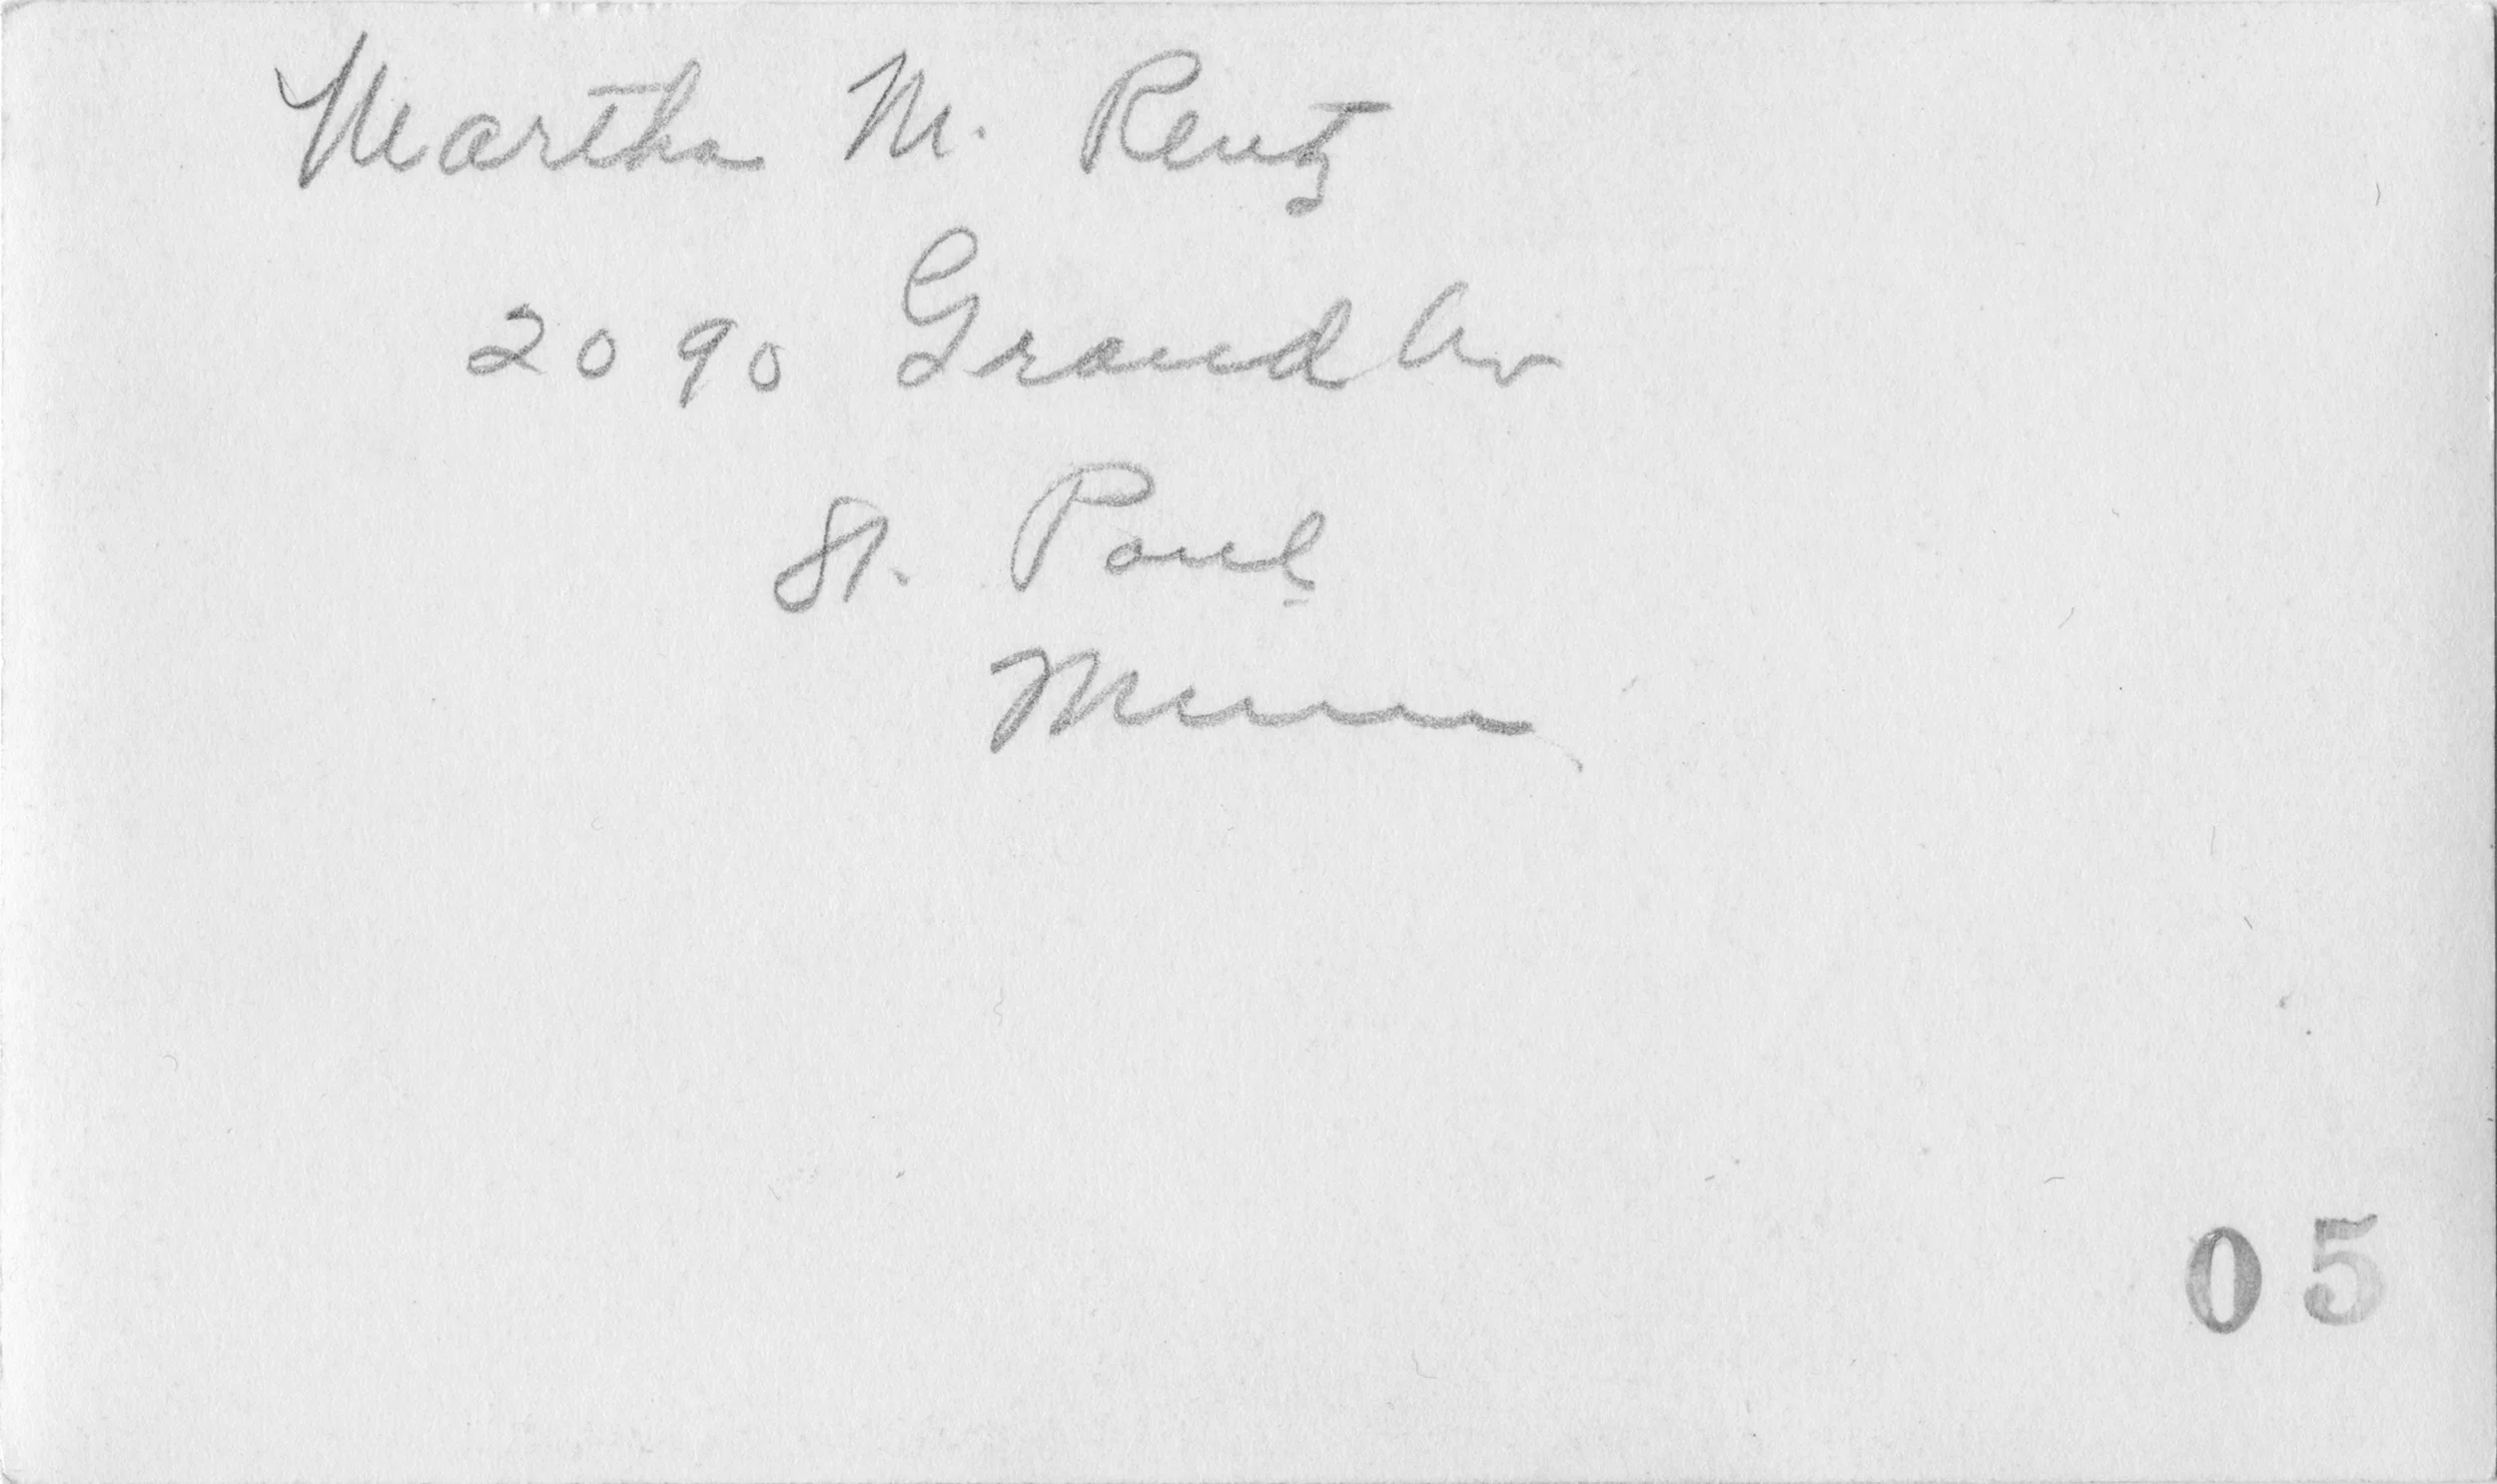 Martha M. Rentz
2090 Grand Av
St. Paul
Minn
05